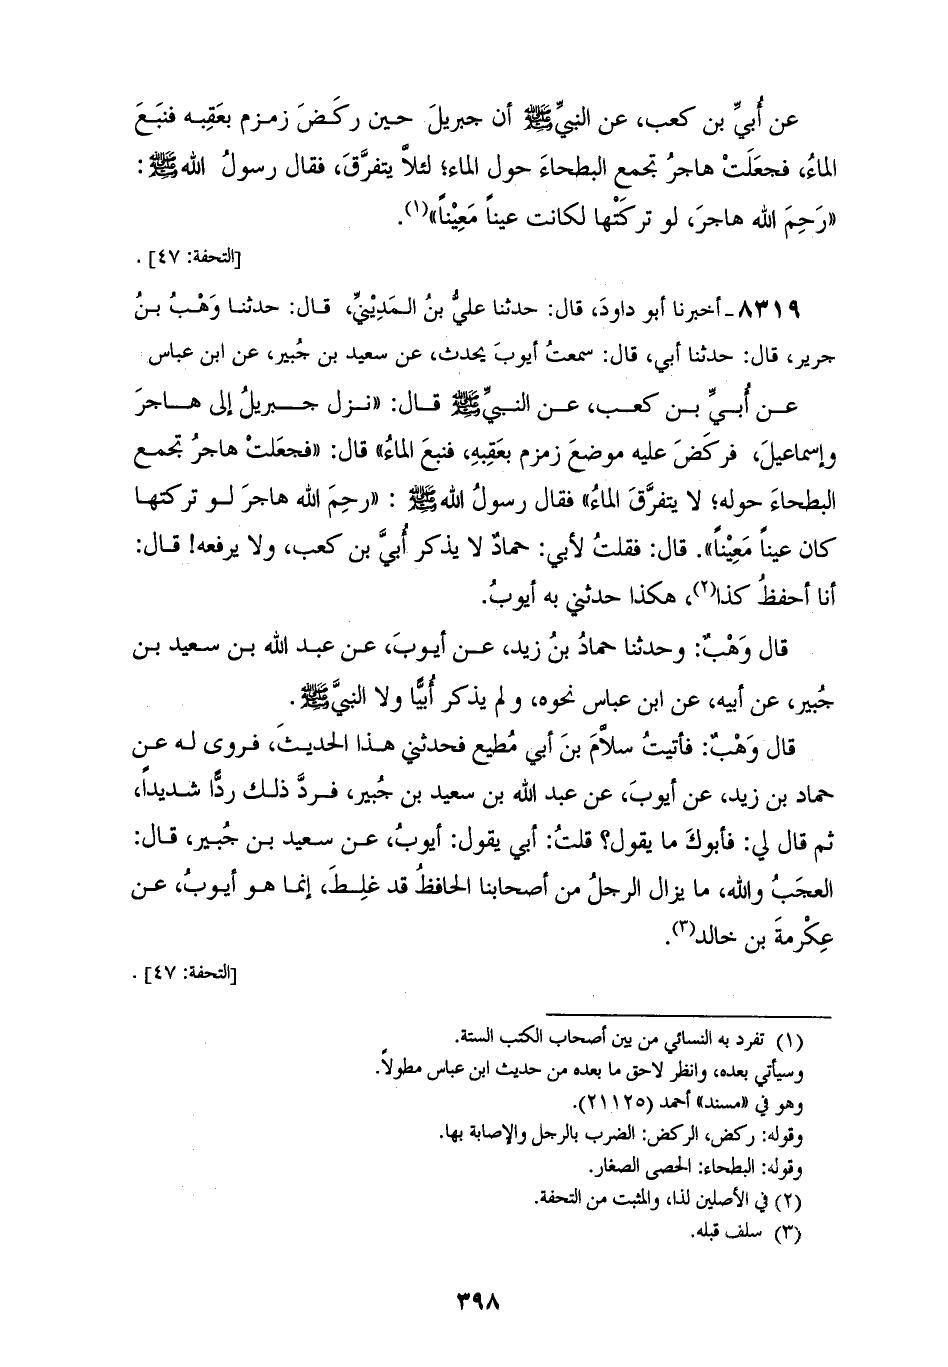 عن أُبيِّ بن كعب، عن النبيِّ ﷺ أن جبريلَ حين ركَضَ زمزم بعَقِبِه فنبَعَ
الماءُ، فجعَلَتْ هاجرُ تجمع البطحاءَ حول الماء؛ لئلاَّ يتفرَّقَ، فقال رسولُ الله ﷺ :
«رَحِمَ الله هاجرَ، لو تركَتْها لكانت عيناً مَعِيْناً»(١).
[التحفة: ٤٧] .
٨٣١٩ـ أخبرنا أبو داودَ، قال: حدثنا عليُّ بنُ المَدِيْنيِّ، قال: حدثنا وَهْبُ بنُ
جرير، قال: حدثنا أبي، قال: سمعتُ أيوبَ يحدث، عن سعيد بن جُبير، عن ابن عباس
عن أُبيِّ بن كعب، عن النبيِّ ﷺ قال: «نزل جبريلُ إلى هاجرَ
وإسماعيلَ، فركَضَ عليه موضعَ زمزم بعَقِبِهِ، فنبَعَ الماءُ» قال: «فجعَلتْ هاجرُ تجمع
البطحاءَ حوله؛ لا يتفرَّقَ الماءُ» فقال رسولُ الله ﷺ : «رحِمَ الله هاجرَ لو تركتها
كان عيناً مَعِيْناً». قال: فقلتُ لأبي: حمادٌ لا يذكر أُبيَّ بن كعب، ولا يرفعه! قال:
أنا أحفظُ كذا(٢)، هكذا حدثني به أيوبُ.
قال وَهْبٌ: وحدثنا حمادُ بنُ زيد، عن أيوبَ، عن عبد الله بن سعيد بن
جُبير، عن أبيه، عن ابن عباس نحوه، ولم يذكر أُبيًّا ولا النبيَّ ﷺ.
قال وَهْبٌ: فأتيتُ سلاَّمَ بنَ أبي مُطيع فحدثني هذا الحديثَ، فروى له عن
حماد بن زيد، عن أيوبَ، عن عبد الله بن سعيد بن جُبير، فردَّ ذلك ردًّا شديداً،
ثم قال لي: فأبوكَ ما يقول؟ قلتُ: أبي يقول: أيوبُ، عن سعيد بن جُبير، قال:
العجَبُ والله، ما يزال الرجلُ من أصحابنا الحافظُ قد غلِطَ، إنما هو أيوبُ، عن
عِكْرمةَ بن خالد(٣).
[التحفة: ٤٧] .
(١) تفرد به النسائي من بين أصحاب الكتب الستة.
وسيأتي بعده، وانظر لاحق ما بعده من حديث ابن عباس مطولاً.
وهو في «مسند» أحمد (٢١١٢٥).
وقوله: ركض، الركض: الضرب بالرجل والإصابة بها.
وقوله: البطحاء: الحصى الصغار.
(٢) في الأصلين لذا، والمثبت من التحفة.
(٣) سلف قبله.
٣٩٨